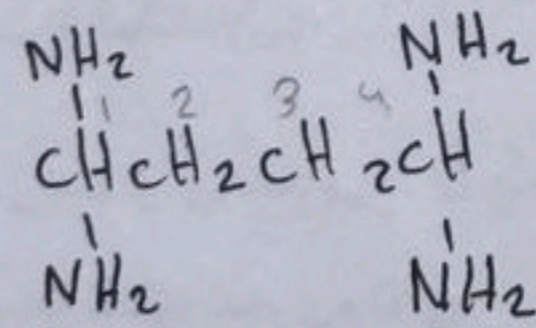 NH2 NH2
1 2 3 4
CHCH2CH2CH
NH2 NH2